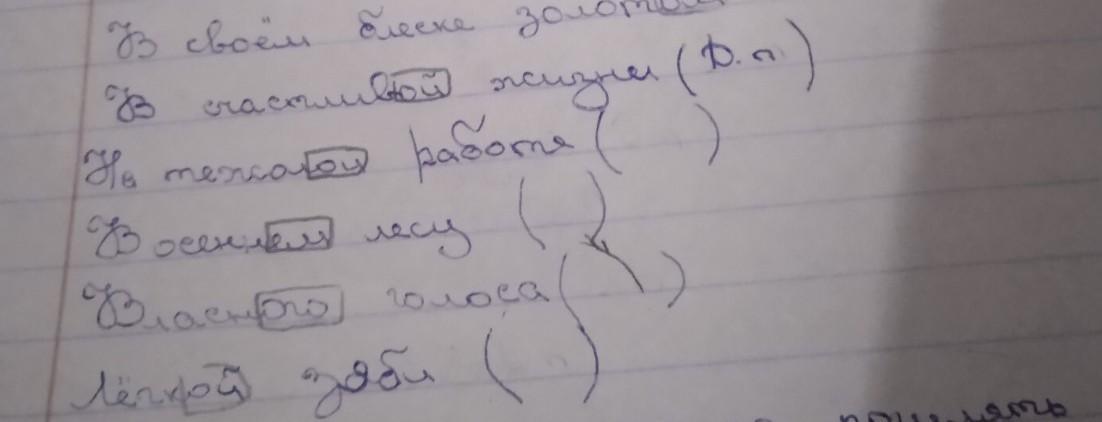 В своём блеске золотом
В счастливой жизни (Д.п.)
На тяжолой работя ( )
В осеннем лесу ( )
Властного голоса ( )
Лёгкой зяби ( )